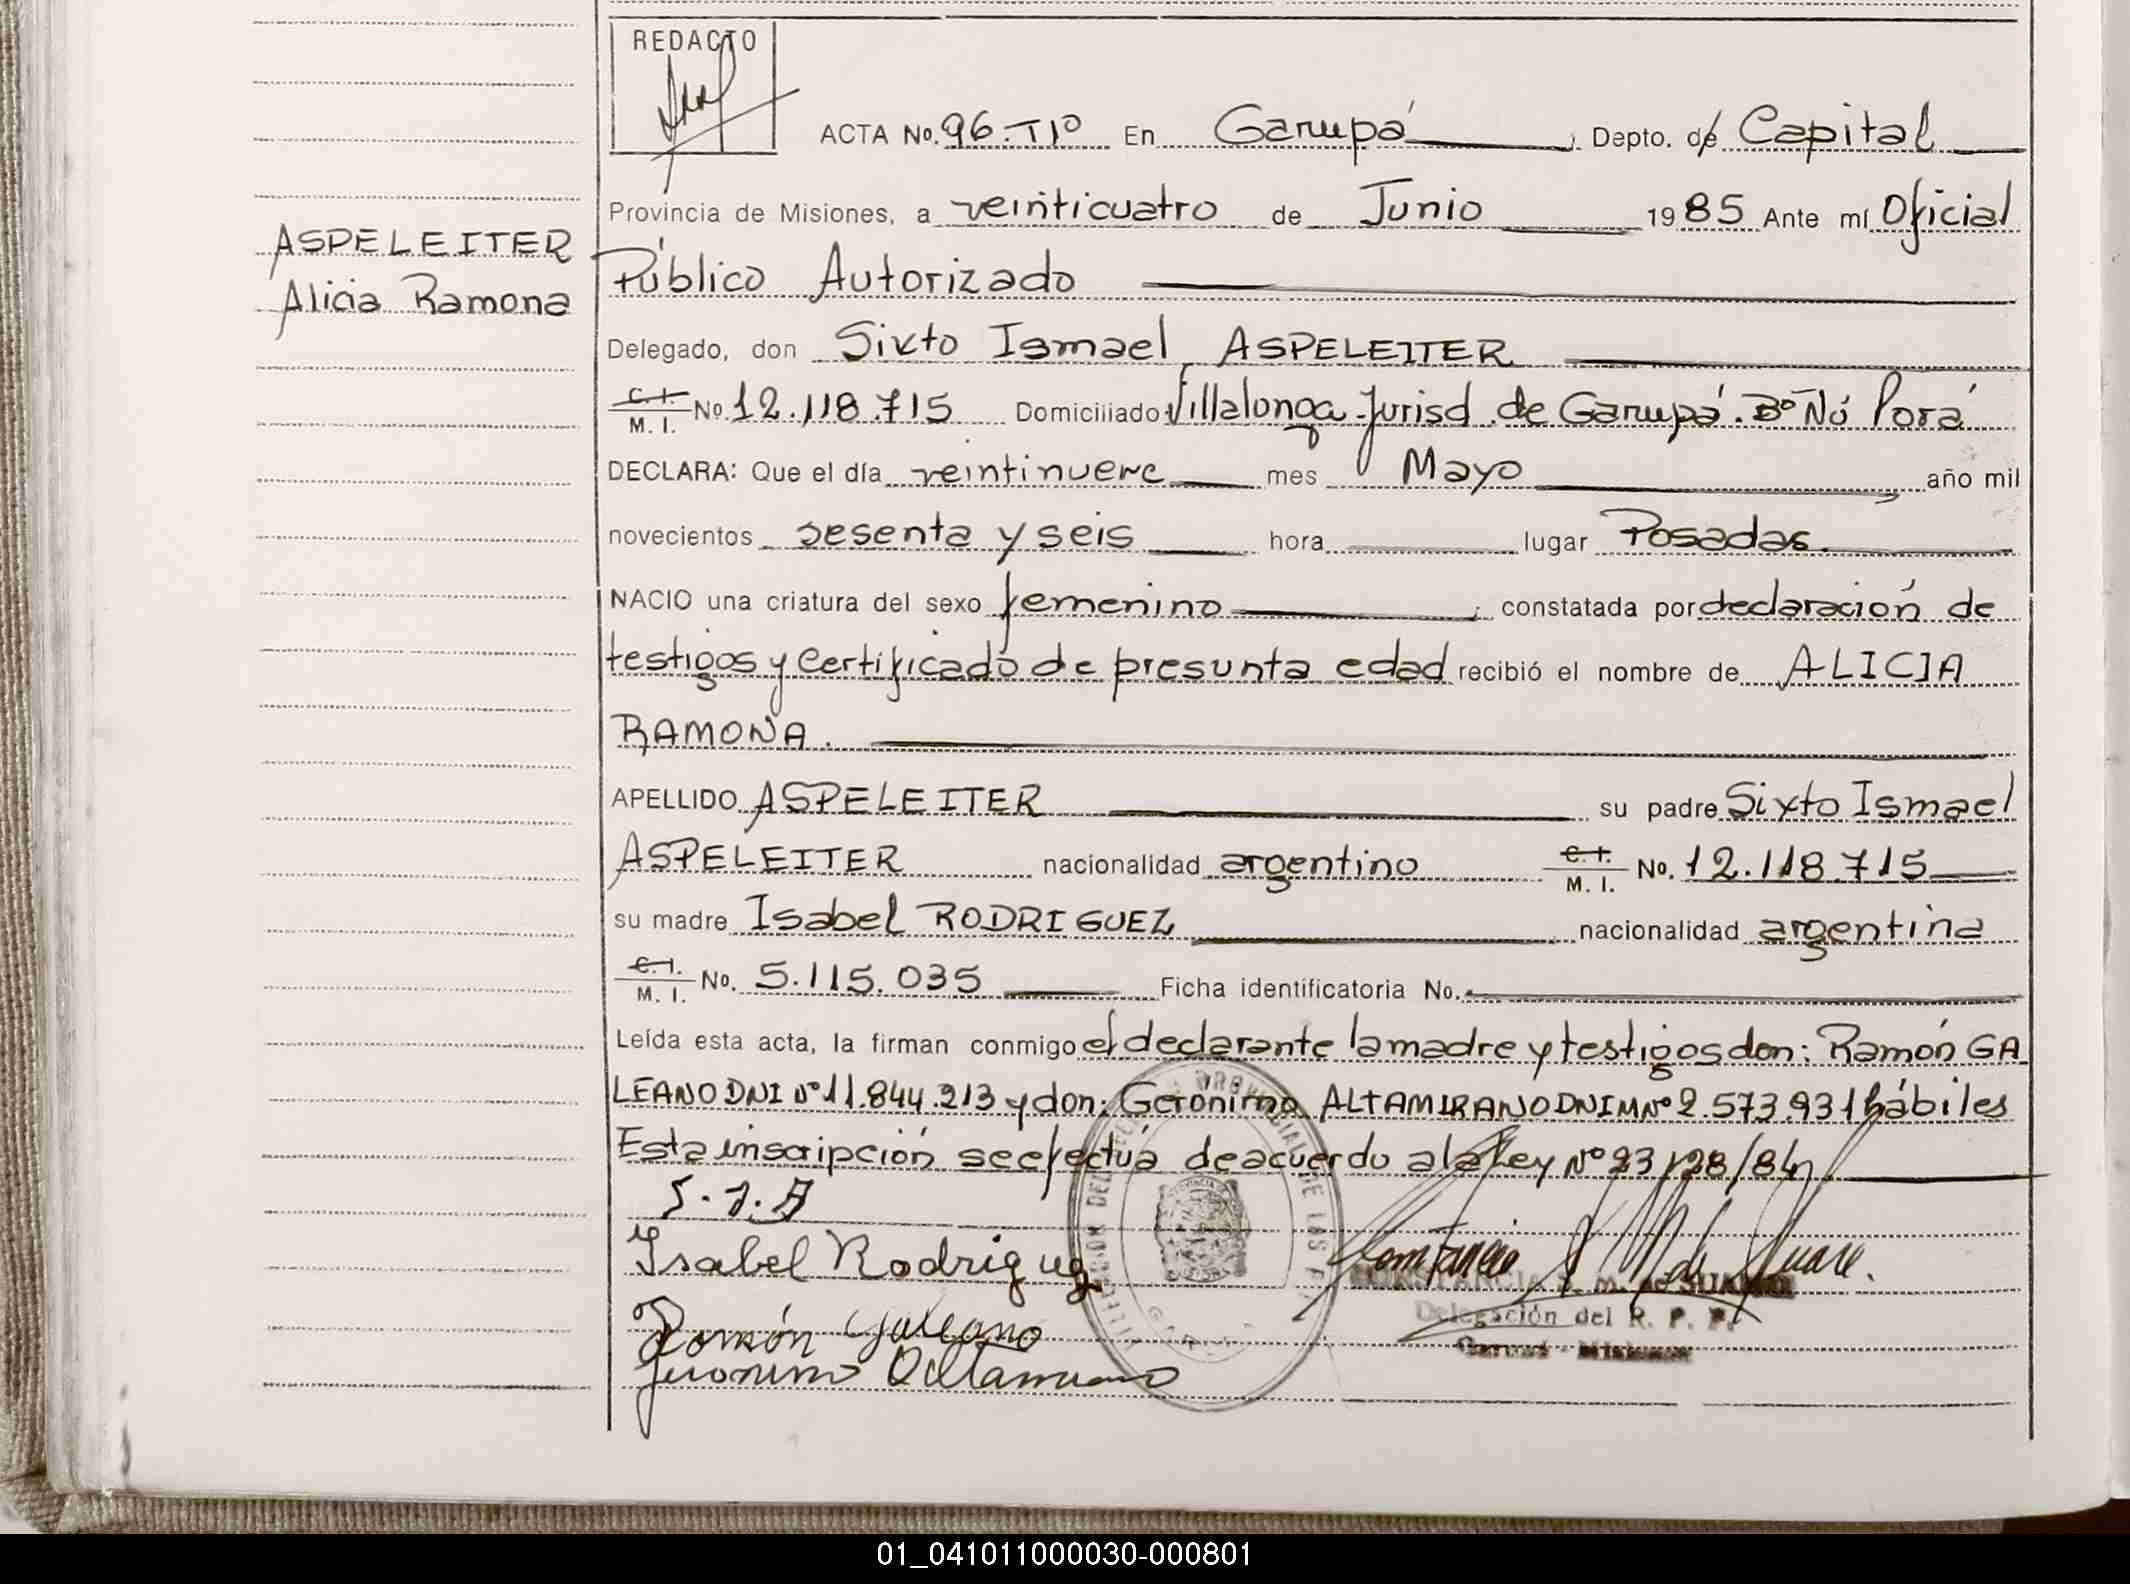 REDACTO
ACTA No. 96-T1º En Garupá, Depto. de Capital
Provincia de Misiones, a veinticuatro de Junio 1985 Ante mí Oficial
ASPELEITER
Público Autorizado
Alicia Ramona
Delegado, don Sixto Ismael ASPELEITER
C. I.
M. I. No. 12.118.715 Domiciliado Villalonga-Jurisd. de Garupá. Bº Ñú Porá
DECLARA: Que el día veintinueve mes Mayo año mil
novecientos sesenta y seis hora lugar Posadas.
NACIO una criatura del sexo femenino; constatada por declaración de
testigos y certificado de presunta edad recibió el nombre de ALICIA
RAMONA.
APELLIDO ASPELEITER su padre Sixto Ismael
ASPELEITER nacionalidad argentino C. I. M. I. No. 12.118.715
su madre Isabel RODRIGUEZ nacionalidad argentina
C. I.
M. I. No. 5.115.035 Ficha identificatoria No.
Leída esta acta, la firman conmigo el declarante la madre y testigos don: Ramón GA
LEANO DNI Nº 11.844.213 y don: Gerónimo ALTAMIRANO DNIM Nº 2.573.931 hábiles
Esta inscripción se efectúa de acuerdo a la Ley Nº 23128/84
S.I.A
Isabel Rodriguez
CONSTANCIA S. M. de SUAREZ
Delegación del R. P. P.
Ramón Galeano
Garupá - Misiones
Jeronimo Altamirano
01_041011000030-000801